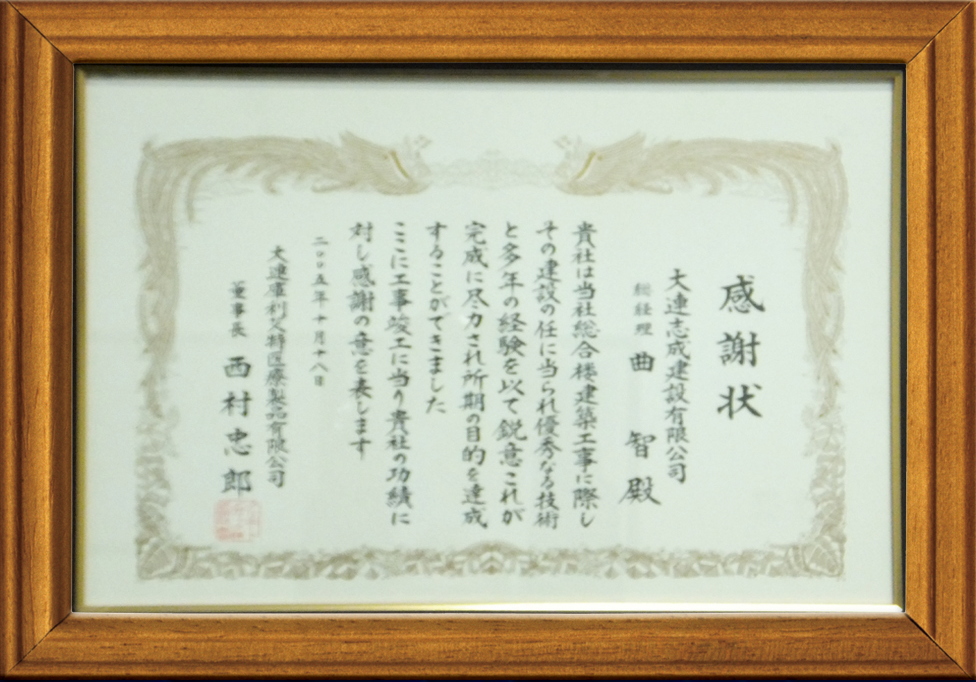 感謝状
大連志成建設有限公司
総経理 曲 智 殿
貴社は当社総合楼建築工事に際し
その建設の任に当られ優秀なる技術
と多年の経験を以て鋭意これが
完成に尽力され所期の目的を達成
することができました
ここに工事竣工に当り貴社の功績に
対し感謝の意を表します
二〇〇五年十月十八日
大連庫利艾特医療製品有限公司
董事長 西村忠郎